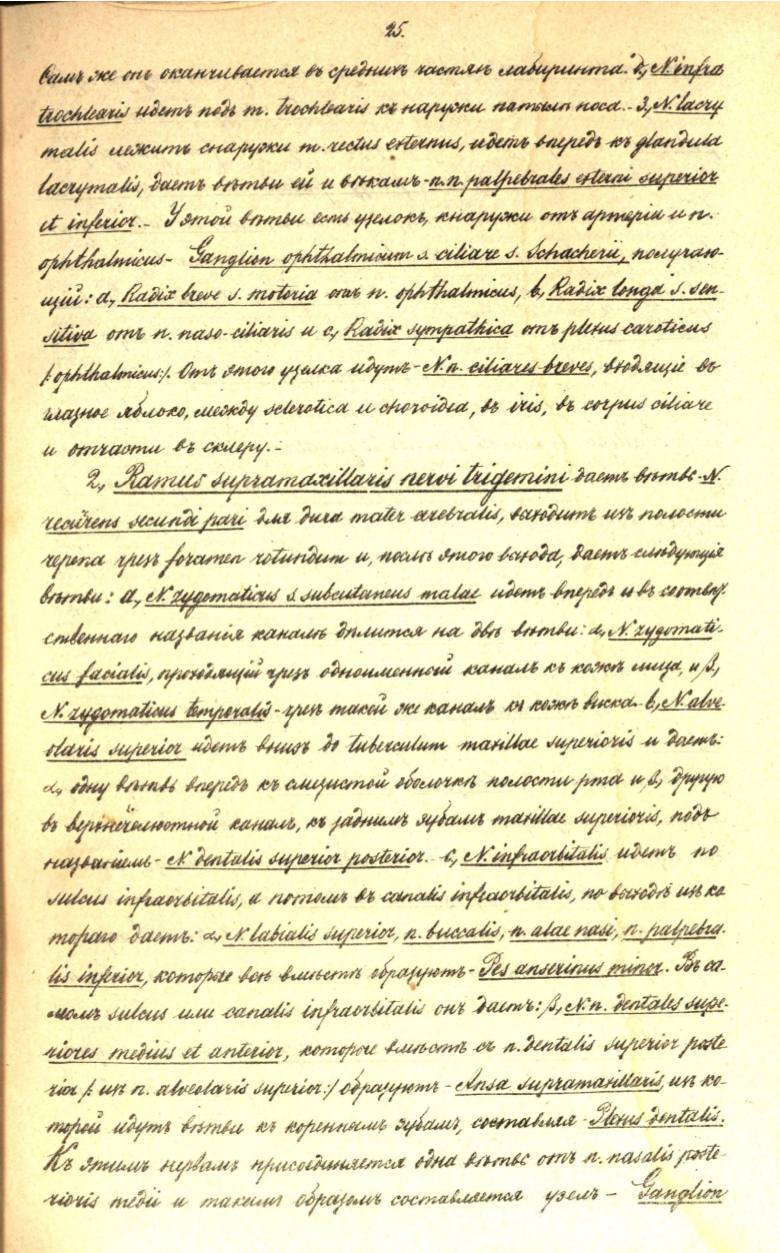 25.
Самъ же онъ оканчивается въ среднихъ частяхъ лабиринта. 2, N. infra
trochlearis идетъ подъ m. trochlearis къ наружи носа. - 3, N. lacry
malis лежитъ снаружи m. rectus externus, идетъ впередъ къ glandula
lacrymalis, даетъ вѣтви ей и вѣкамъ - n.n. palpebrales externi superior
et inferior. - У этой вѣтви есть узелокъ, кнаружи отъ артеріи и n.
ophthalmicus - Ganglion ophthalmicum s. ciliare s. Schacherii, получаю-
щій: a, Radix breve s. motoria отъ n. ophthalmicus, b, Radix longa s. sen-
sitiva отъ n. naso-ciliaris и c, Radix sympathica отъ plexus caroticus
/: ophthalmicus:/. Отъ этого узелка идутъ - N.n. ciliares breves, входящіе въ
глазное яблоко, между sclerotica и choroidea, въ iris, въ corpus ciliare
и отчасти въ склеру. -
2, Ramus supramaxillaris nervi trigemini даетъ вѣтвь - N.
recürens secundi pari для dura mater cerebralis, выходитъ изъ полости
черепа чрезъ foramen rotundum и, послѣ этого выхода, даетъ слѣдующія
вѣтви: a, N. zygomaticus s. subcutaneus malae идетъ впередъ и въ соотвѣт-
ственнаго названія каналѣ дѣлится на двѣ вѣтви: α, N. zygomati-
cus facialis, проходящій чрезъ одноименной каналъ къ кожѣ лица, и β,
N. zygomaticus temporalis - чрезъ такой же каналъ къ кожѣ виска. b, N. alve-
olaris superior идетъ внизъ до tuberculum maxillae superioris и даетъ:
α, одну вѣтвь впередъ къ слизистой оболочкѣ полости рта и β, другую
въ верхнечелюстной каналъ, къ заднимъ зубамъ maxillae superioris, подъ
названіемъ - N dentalis superior posterior. c, N. infraorbitalis идетъ по
sulcus infraorbitalis, а потомъ въ canalis infraorbitalis, по выходѣ изъ ко-
тораго даетъ: α, N labialis superior, n. buccalis, n. alae nasi, n. palpebra-
lis inferior, которые всѣ вмѣстѣ образуютъ - Pes anserinus minor. Въ са-
момъ sulcus или canalis infraorbitalis онъ даетъ: β, N.n. dentales supe-
riores medius et anterior, которые вмѣстѣ съ n. dentalis superior poste
rior /: изъ n. alveolaris superior:/ образуютъ - Ansa supramaxillaris, изъ ко-
торой идутъ вѣтви къ кореннымъ зубамъ, составляя - Plexus dentalis.
Къ этимъ нервамъ присоединяется одна вѣтвь отъ n. nasalis poste-
rioris medii и такимъ образомъ составляется узелъ - Ganglion